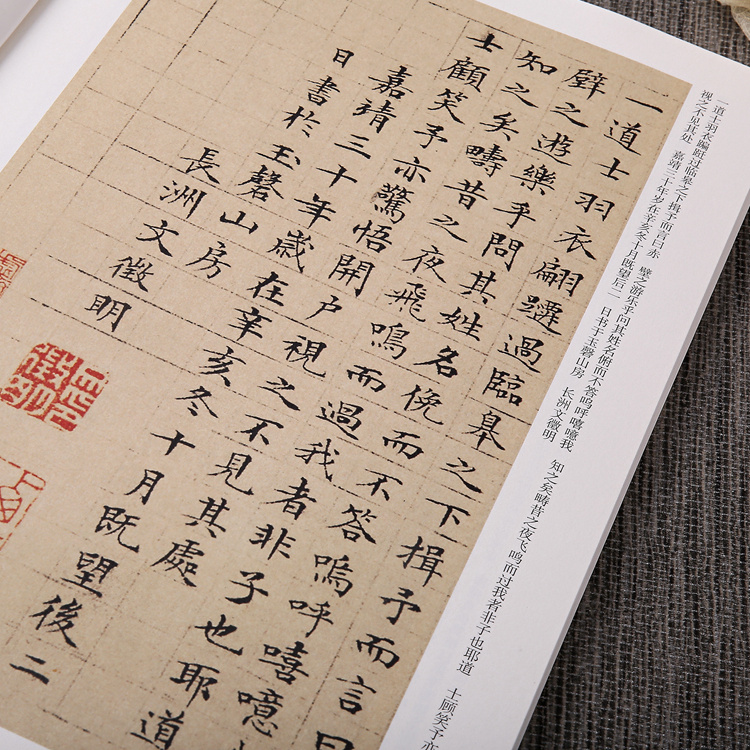 一道士羽衣蹁跹过临皋之下揖予而言曰赤　壁之游乐乎问其姓名俯而不答呜呼嘻噫我　知之矣畴昔之夜飞鸣而过我者非子也耶道　士顾笑予亦
视之不见其处　嘉靖三十年岁在辛亥冬十月既望后二　日书于玉磬山房　长洲文徵明
一道士羽衣翩躚過臨皋之下揖予而言曰
壁之遊樂乎問其姓名俛而不答嗚呼嘻噫
知之矣疇昔之夜飛鳴而過我者非子也耶道
士顧笑予亦驚悟開戶視之不見其處
嘉靖三十年歲在辛亥冬十月既望後二
日書於玉磬山房
長洲文徵明